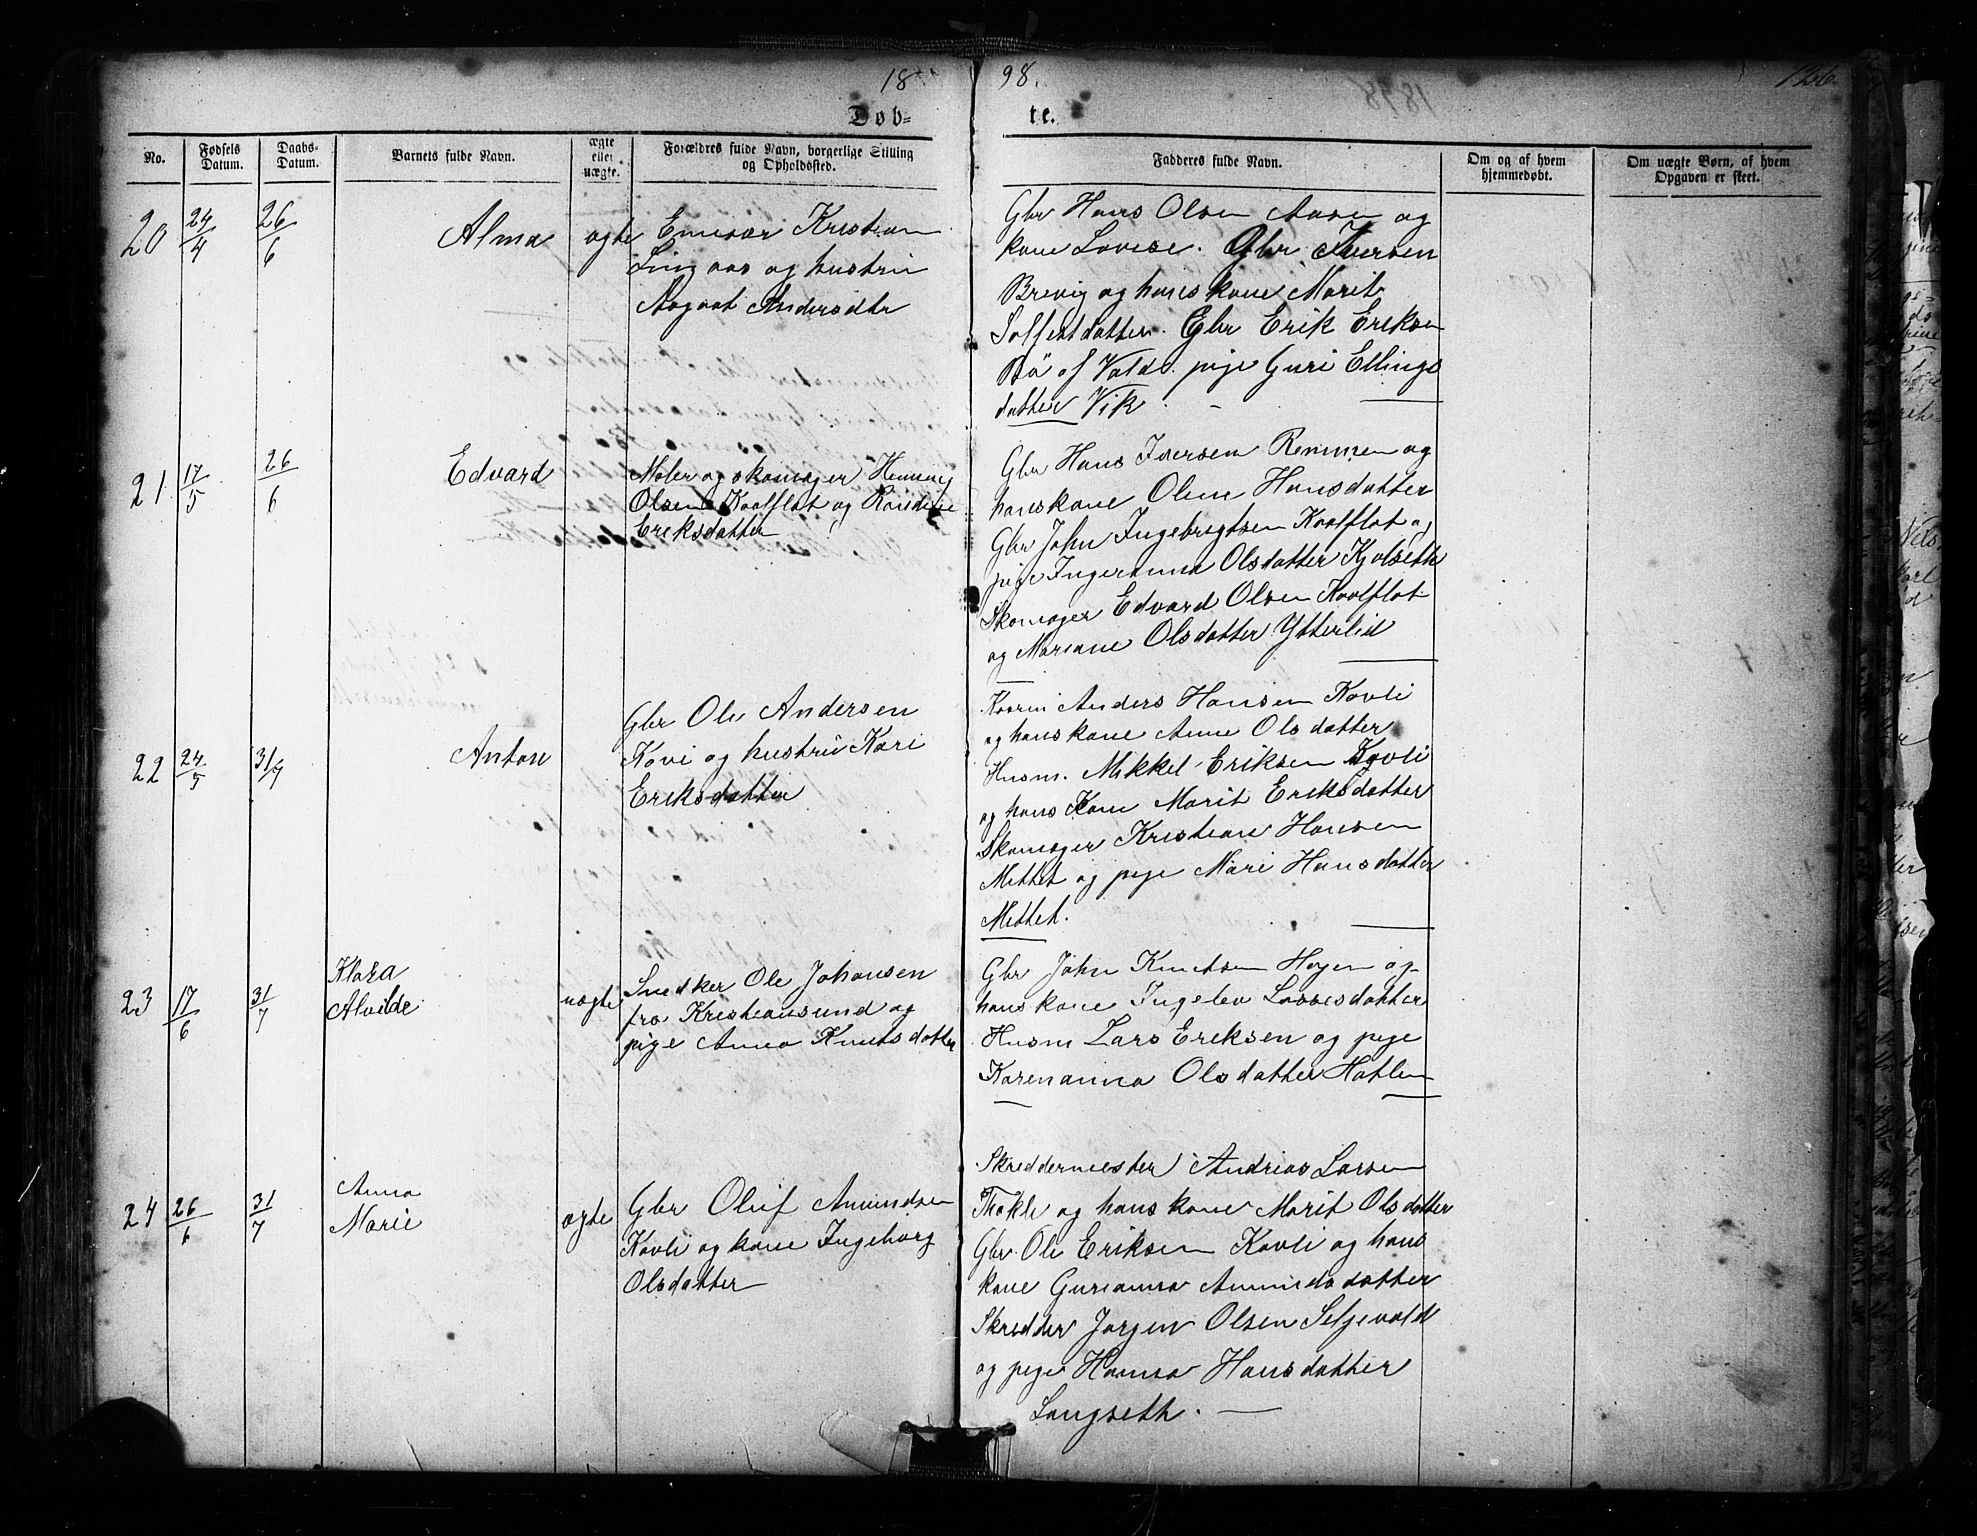 1898.
126
Døbte.
No.
Fødsels Datum.
Daabs-Datum.
Barnets fulde Navn.
ægte eller uægte.
Forældres fulde Navn, borgerlige Stilling og Opholdssted.
Fadderes fulde Navn.
Om og af hvem hjemmedøbt.
Om uægte Børn, af hvem Opgaven er skeet.
20 24/4 26/6 Alma ægte
Kristian
og hustru
Andersdtr
Gbr Hans Olsen Aasen og
kone Lovise. Gbr Iversen
Brevig og hans kone Marit
datter. Gbr Erik Eriksen
Bö af Vold. pige Guri Ellings
datter Vik.
21 17/5 26/6 Edvard
Maler og skomager Henning
Olsen Kaalflot og
Eriksdatter
Gbr Hans Iversen Remmen og
hans kone Oline Hansdatter
Gbr John Ingebrigtsen Kaalflot og
pige Ingeranna Olsdatter Kjølseth
Skomager Edvard Olsen Kaalflot
og Mariane Olsdatter Ytterlid
22 24/5 31/7 Anton
Gbr Ole Andersen
Kavli og hustru Kari
Eriksdatter
Kaarm Anders Hansen Kavli
og hans kone Anne Olsdatter
Husm. Mikkel Eriksen Kavli
og hans Kone Marit Eriksdatter
Skomager Kristian Hansen
Mittet og pige Mari Hansdatter
Mittet.
23 17/6 31/7 Klara
Alvilde uægte
Snedker Ole Johansen
fra Kristiansund og
pige Anna Knutsdatter
Gbr John Knutsen Hagen og
hans kone Ingelev Lassesdatter
Husm Lars Eriksen og pige
Karenanna Olsdatter Hatlen
24 26/6 31/7 Anna
Marie ægte
Gbr Oluf Amundsen
Kavli og kone Ingeborg
Olsdatter
Skreddermester Andrias Larsen
og hans kone Marit Olsdatter
Gbr. Ole Eriksen Kavli og hans
kone Gurianna Amundsdatter
Skredder Jørgen Olsen Seljevold
og pige Hanna Hansdatter
Langseth.